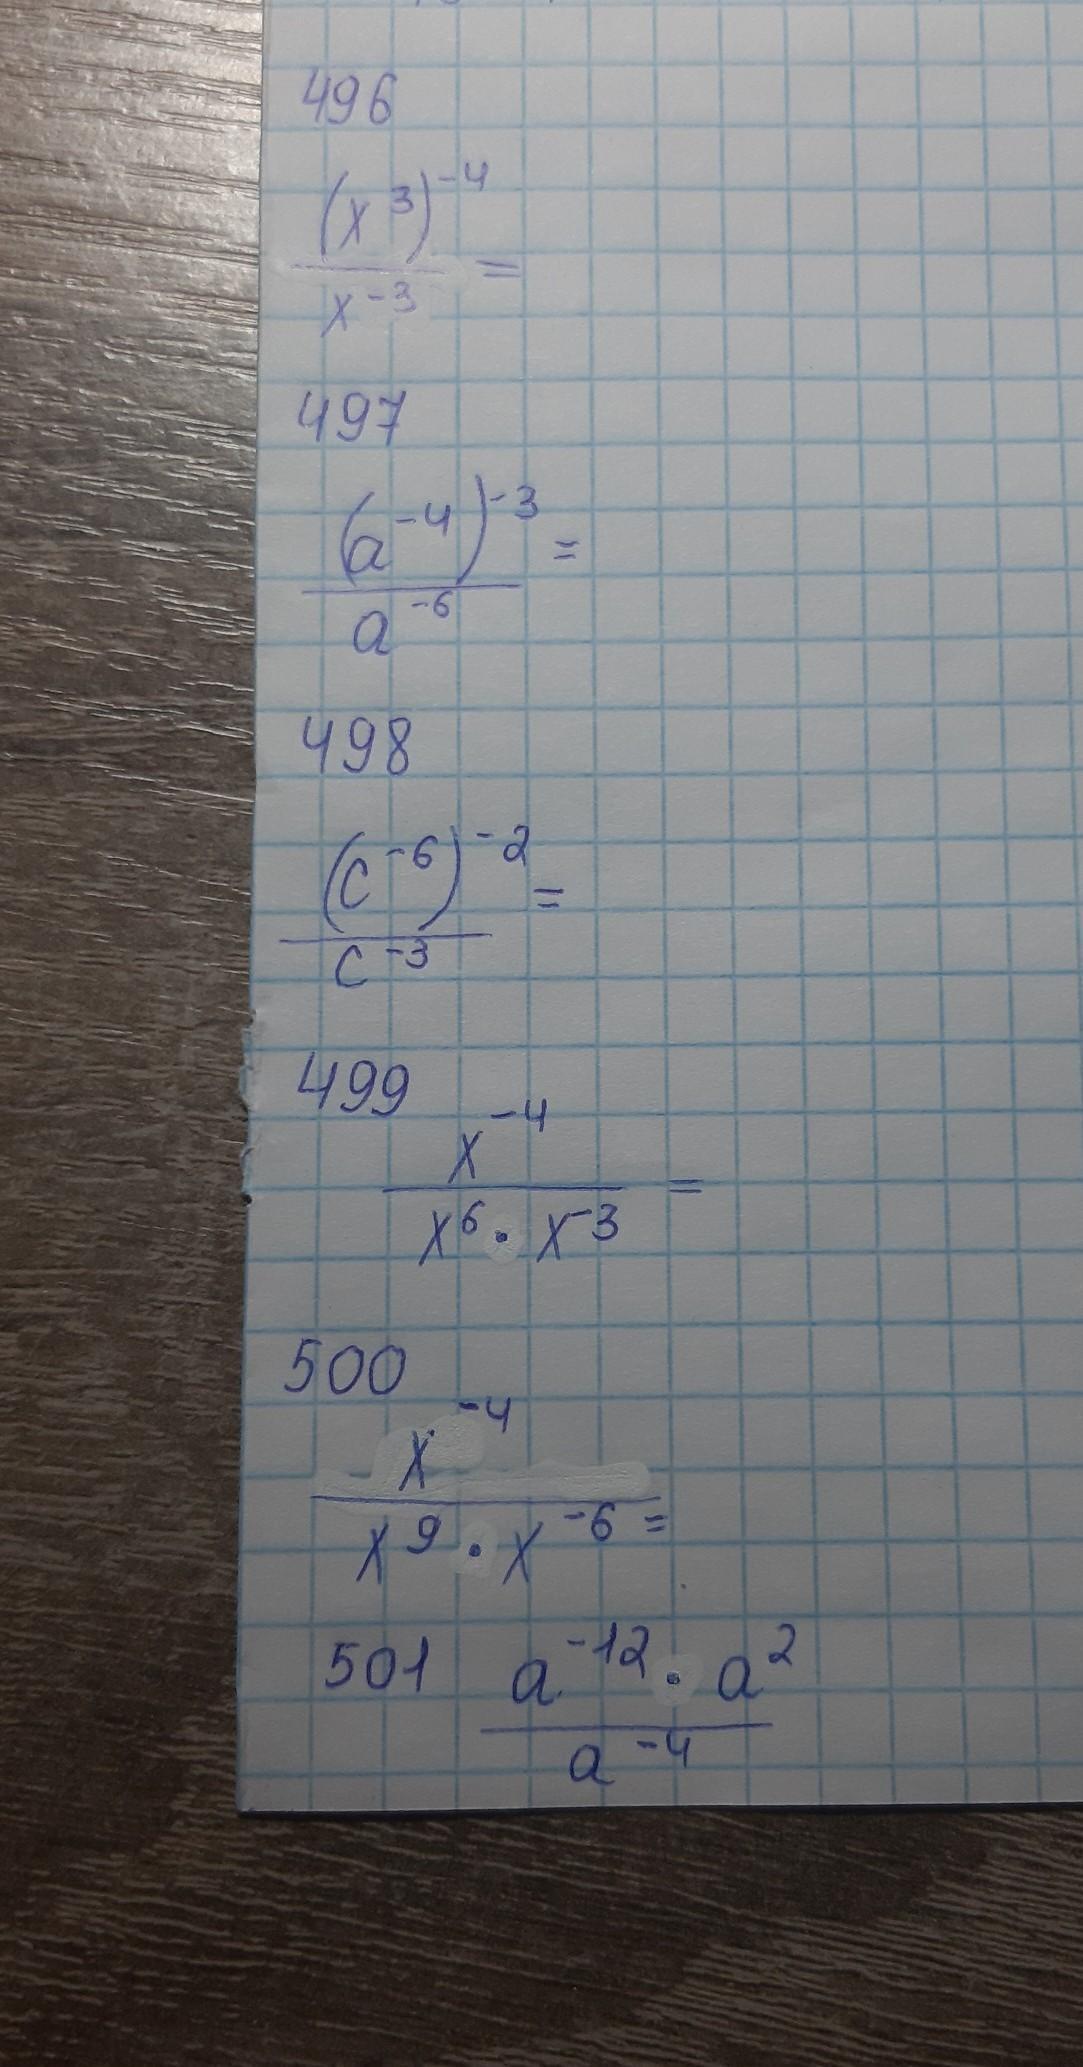 496
(x³)⁻⁴
x⁻³ =
497
(a⁻⁴)⁻³ =
a⁻⁶
498
(c⁻⁶)⁻² =
c⁻³
499
x⁻⁴
x⁶ · x⁻³ =
500
x⁻⁴
x⁹ · x⁻⁶ =
501 a⁻¹² · a²
a⁻⁴